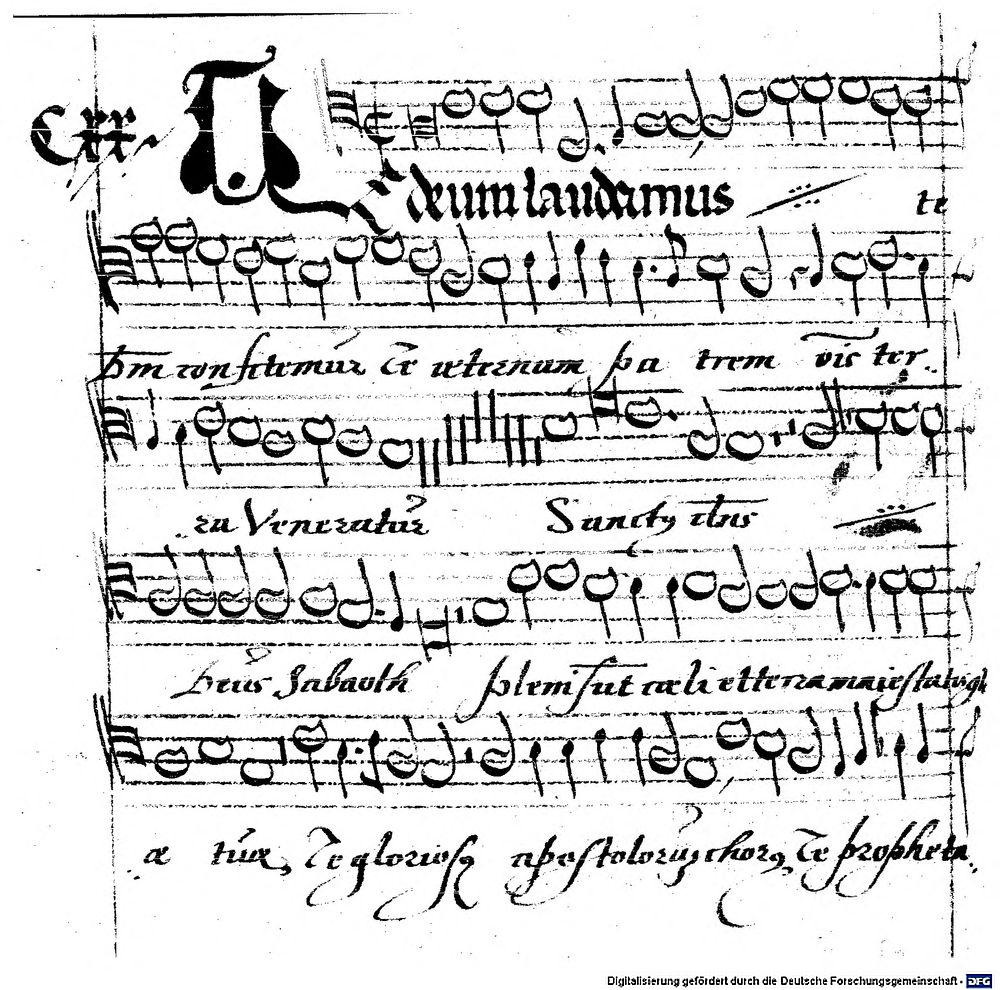 Cxx.
Te deum laudamus te
Dm̄ confitemur Te æternum pa trem ois ter
ra Veneratur Sanctus dns
Deus Sabaoth pleni sūt cæli et terra maiestatis gl
æ tuæ, Te gloriosus apostolorum chorus Te propheta
Digitalisierung gefördert durch die Deutsche Forschungsgemeinschaft - DFG